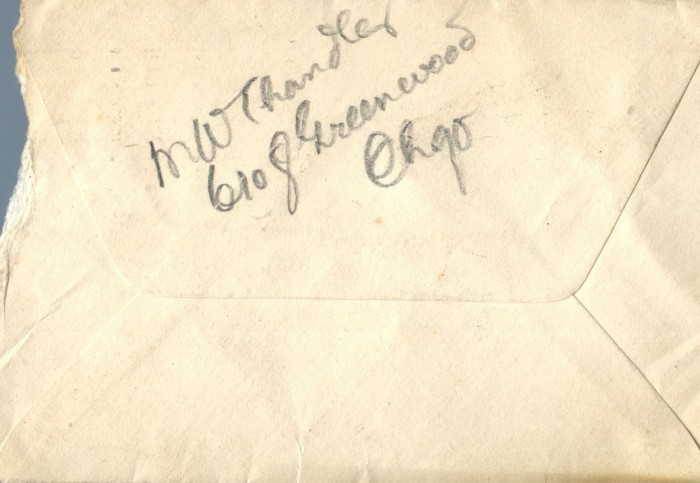 M W Chandler
6108 Greenwood
Chgo